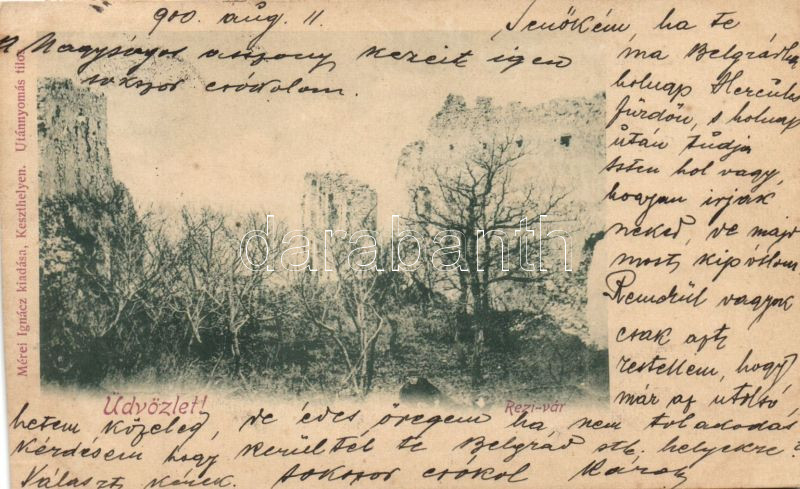 900. aug. 11
A Nagyságos asszony kezeit igen
sokszor csókolom.
Jenőkém, ha te
ma Belgrádban
holnap Herculs
fürdőn, s holnap
után tudja
Isten hol vagy,
hogyan irjak
neked, de majd
most kipótlom
Rendkül vagyok
csak azt
restellem, hogy
már az utolsó
hetem közeleg, de édes öregem ha, nem tolakodás
kérdésem hogy kerültél te Belgrád stb. helyekre?
Választ kérek. sokszor csókol Károly
Mérei Ignácz kiadása, Keszthelyen. Utánnyomás tilos
Üdvözlet!
Rezi-vár
darabanth